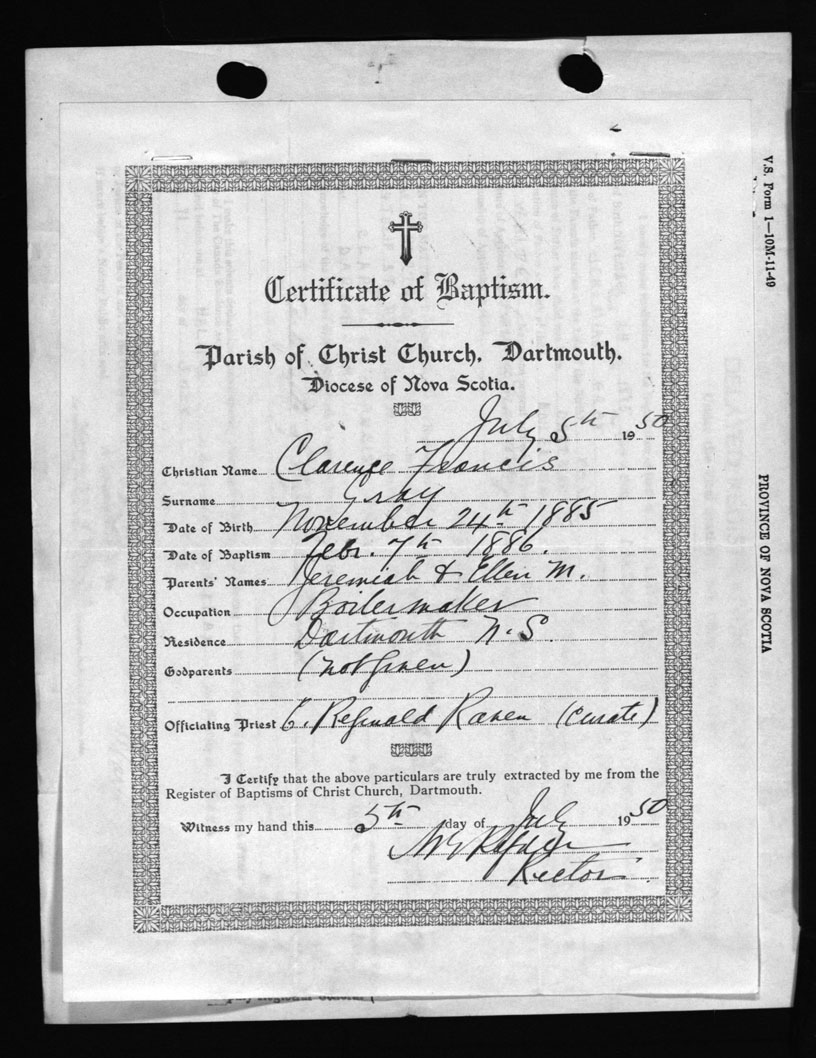 Certificate of Baptism.
Parish of Christ Church, Dartmouth.
Diocese of Nova Scotia.
July 5th 1950
Christian Name Clarence Francis
Surname Gray
Date of Birth November 24th 1885
Date of Baptism Febr. 7th 1886.
Parents' Names Jeremiah & Ellen M.
Occupation Boilermaker
Residence Dartmouth N.S.
Godparents (not given)
Officiating Priest Reginald Raven (curate)
I Certify that the above particulars are truly extracted by me from the
Register of Baptisms of Christ Church, Dartmouth.
Witness my hand this 5th day of July 1950
Rector
V.S. Form 1—10M-11-49
PROVINCE OF NOVA SCOTIA